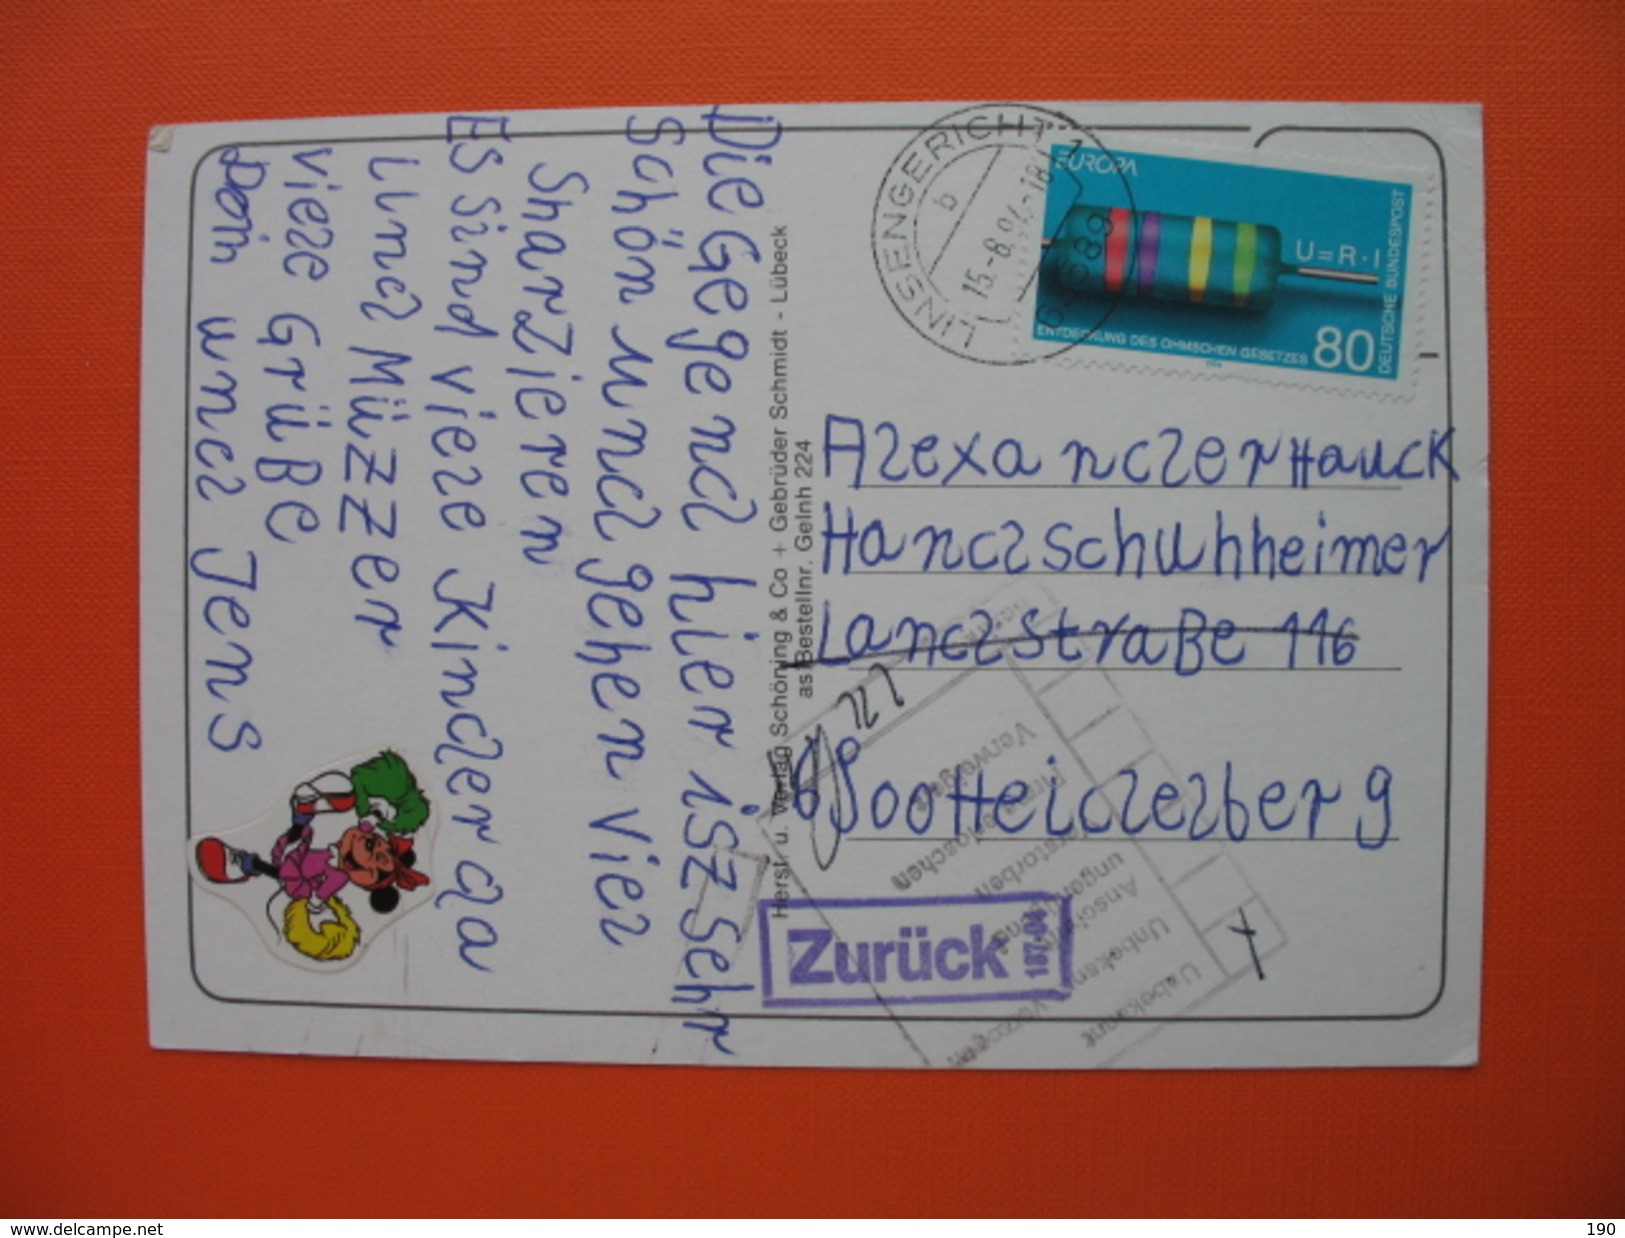 Die Gegend hier ist sehr
schön und gehen viel
sharzieren
Es sind viele Kinder da
und Müzzer
viele Grüße
Dein und Jens
Herst. u. Verlag Schöning & Co + Gebrüder Schmidt - Lübeck
Bestellnr. Gelnh 224
LINSENGERICHT 1
b
15.-8.94.-18
63589
EUROPA
U=R·I
ENTDECKUNG DES OHMSCHEN GESETZES
80
DEUTSCHE BUNDESPOST
Alexander Hauck
Handschuhheimer
Landstraße 116
Heidelberg
Zurück
Unbekannt
Verstorben
www.delcampe.net
190